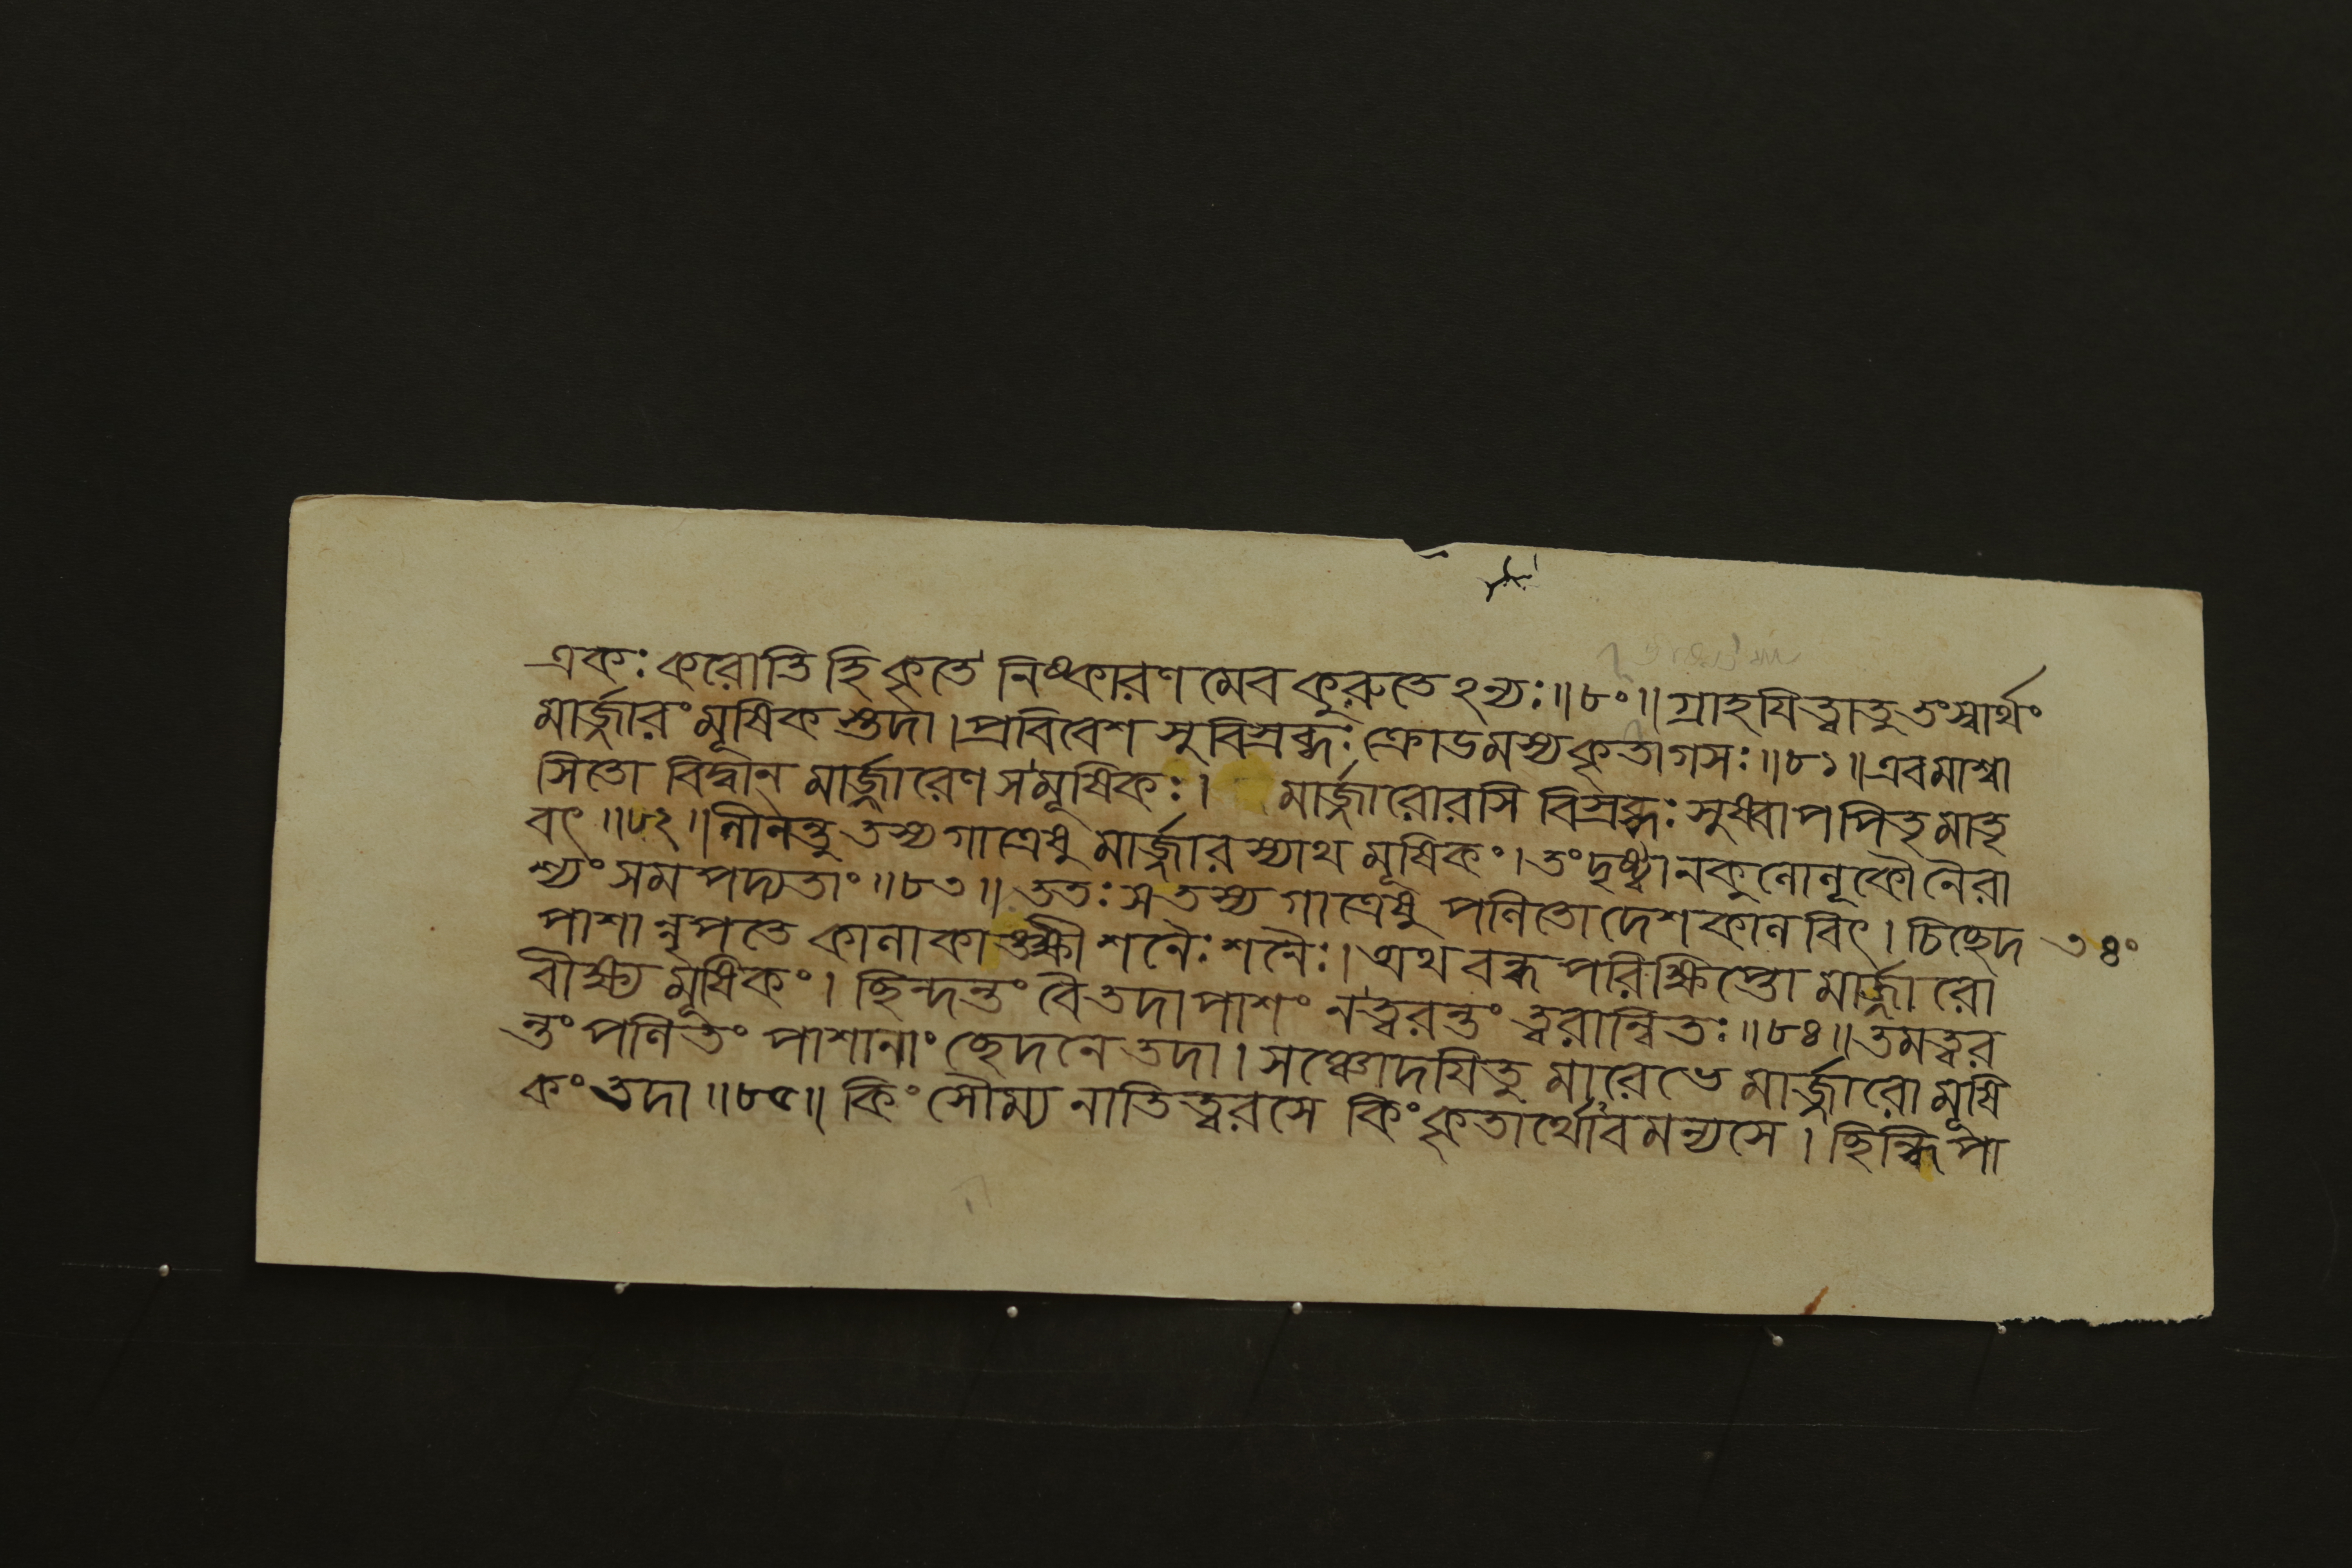 একঃ করোতি হি কৃতে নিষ্কারণমেব কুরুতেঽন্যঃ॥৮০॥গ্রাহযিত্বাতু তংস্বার্থং
মার্জ্জারং মূষিকস্তদা।প্রবিবেশ সুবিস্রব্ধঃ ক্রোডমস্যকৃতাগসঃ॥৮১॥এবমাশ্বা
সিতো বিদ্বান্ মার্জ্জারেণ সমূষিকঃ। মার্জ্জারোরসি বিস্রব্ধঃ সুষ্বাপ পিতৃমাতৃ
বৎ॥৮২॥লীনন্তু তস্য গাত্রেষু মার্জ্জারস্যাথ মূষিকং।তংদৃষ্ট্বানকুলোলূকৌ নৈরা
শ্যং সমপদ্যতাং॥৮৩॥ততঃ স তস্য গাত্রেষু পলিতো দেশকালবিৎ। চিচ্ছেদ
পাশান্নৃপতে কালাকাঙ্ক্ষী শনৈঃ শনৈঃ।অথ বন্ধপরিক্ষিপ্তো মার্জ্জারো
বীক্ষ্য মূষিকং। ছিন্দন্তং বৈ তদা পাশং ন ত্বরন্তং ত্বরান্বিতঃ॥৮৪॥তমত্বর
ন্তং পলিতং পাশানাং ছেদনে তদা। সঞ্চোদযিতুমারেভে মার্জ্জারো মূষি
কং তদা॥৮৫॥ কিং সৌম্য নাতিত্বরসে কিং কৃতার্থোবমন্যসে। ছিন্ধি পা
৩৪০